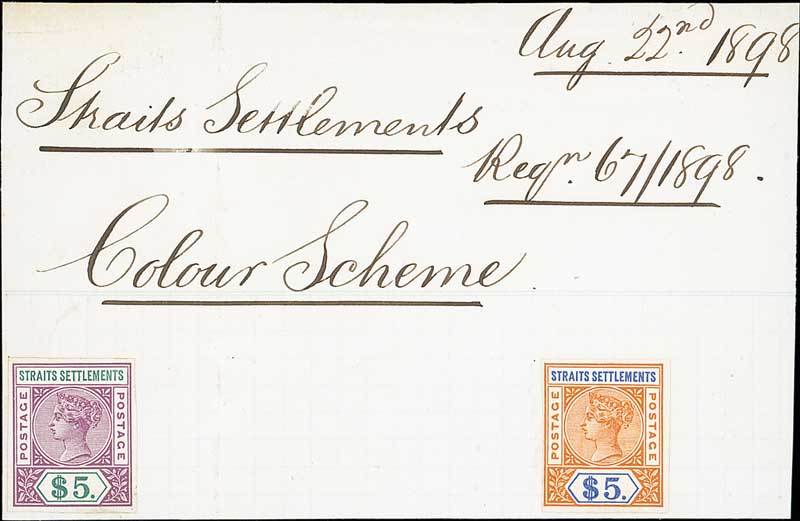 Aug. 22nd. 1898
Straits Settlements
Regn. 67/1898.
Colour Scheme
STRAITS SETTLEMENTS
POSTAGE
POSTAGE
$5.
STRAITS SETTLEMENTS
POSTAGE
POSTAGE
$5.